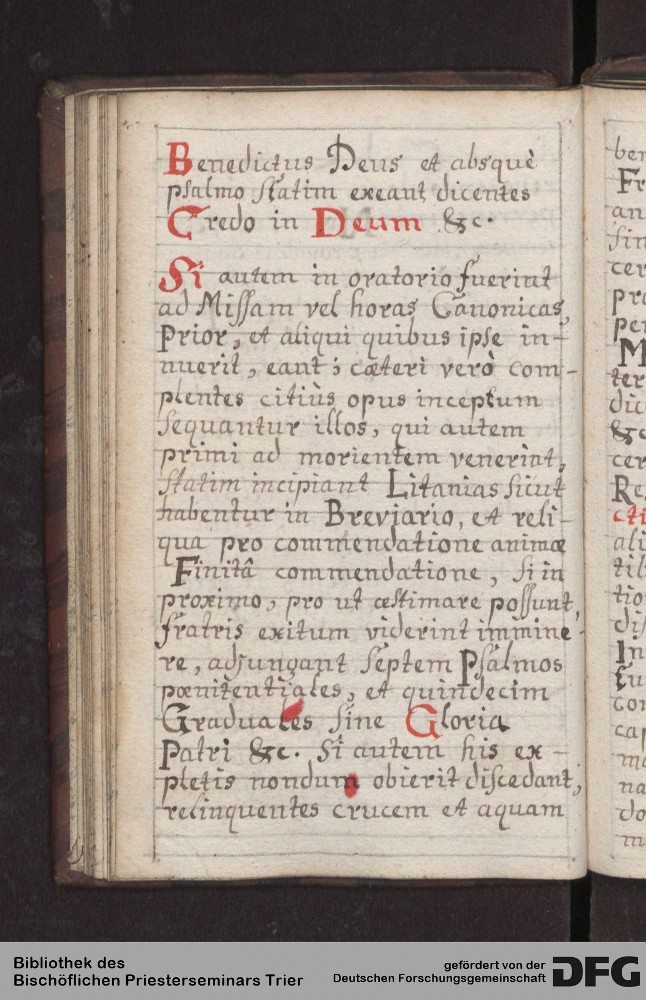 Benedictus Deus et absquè
psalmo statim exeant dicentes
Credo in Deum &c.
Si autem in oratorio fuerint
ad Missam vel horas Canonicas,
Prior, et aliqui quibus ipse in-
nuerit, eant; cæteri verò com-
plentes citiùs opus inceptum
sequantur illos, qui autem
primi ad morientem venerint,
statim incipiant Litanias sicut
habentur in Breviario, et reli-
qua pro commendatione animæ
Finitâ commendatione, si in
proximo, pro ut æstimare possunt,
fratris exitum viderint immine-
re, adjungant septem Psalmos
pœnitentiales, et quindecim
Graduales sine Gloria
Patri &c. Si autem his ex-
pletis nondum obierit discedant,
relinquentes crucem et aquam
ber
Fr
an
sin
cer
pro
per
M
ter
dic
&c
cer
Re
cti
ali
til
tio
dis
In
su
con
cap
me
na
do
m
Bibliothek des
Bischöflichen Priesterseminars Trier
gefördert von der
Deutschen Forschungsgemeinschaft
DFG